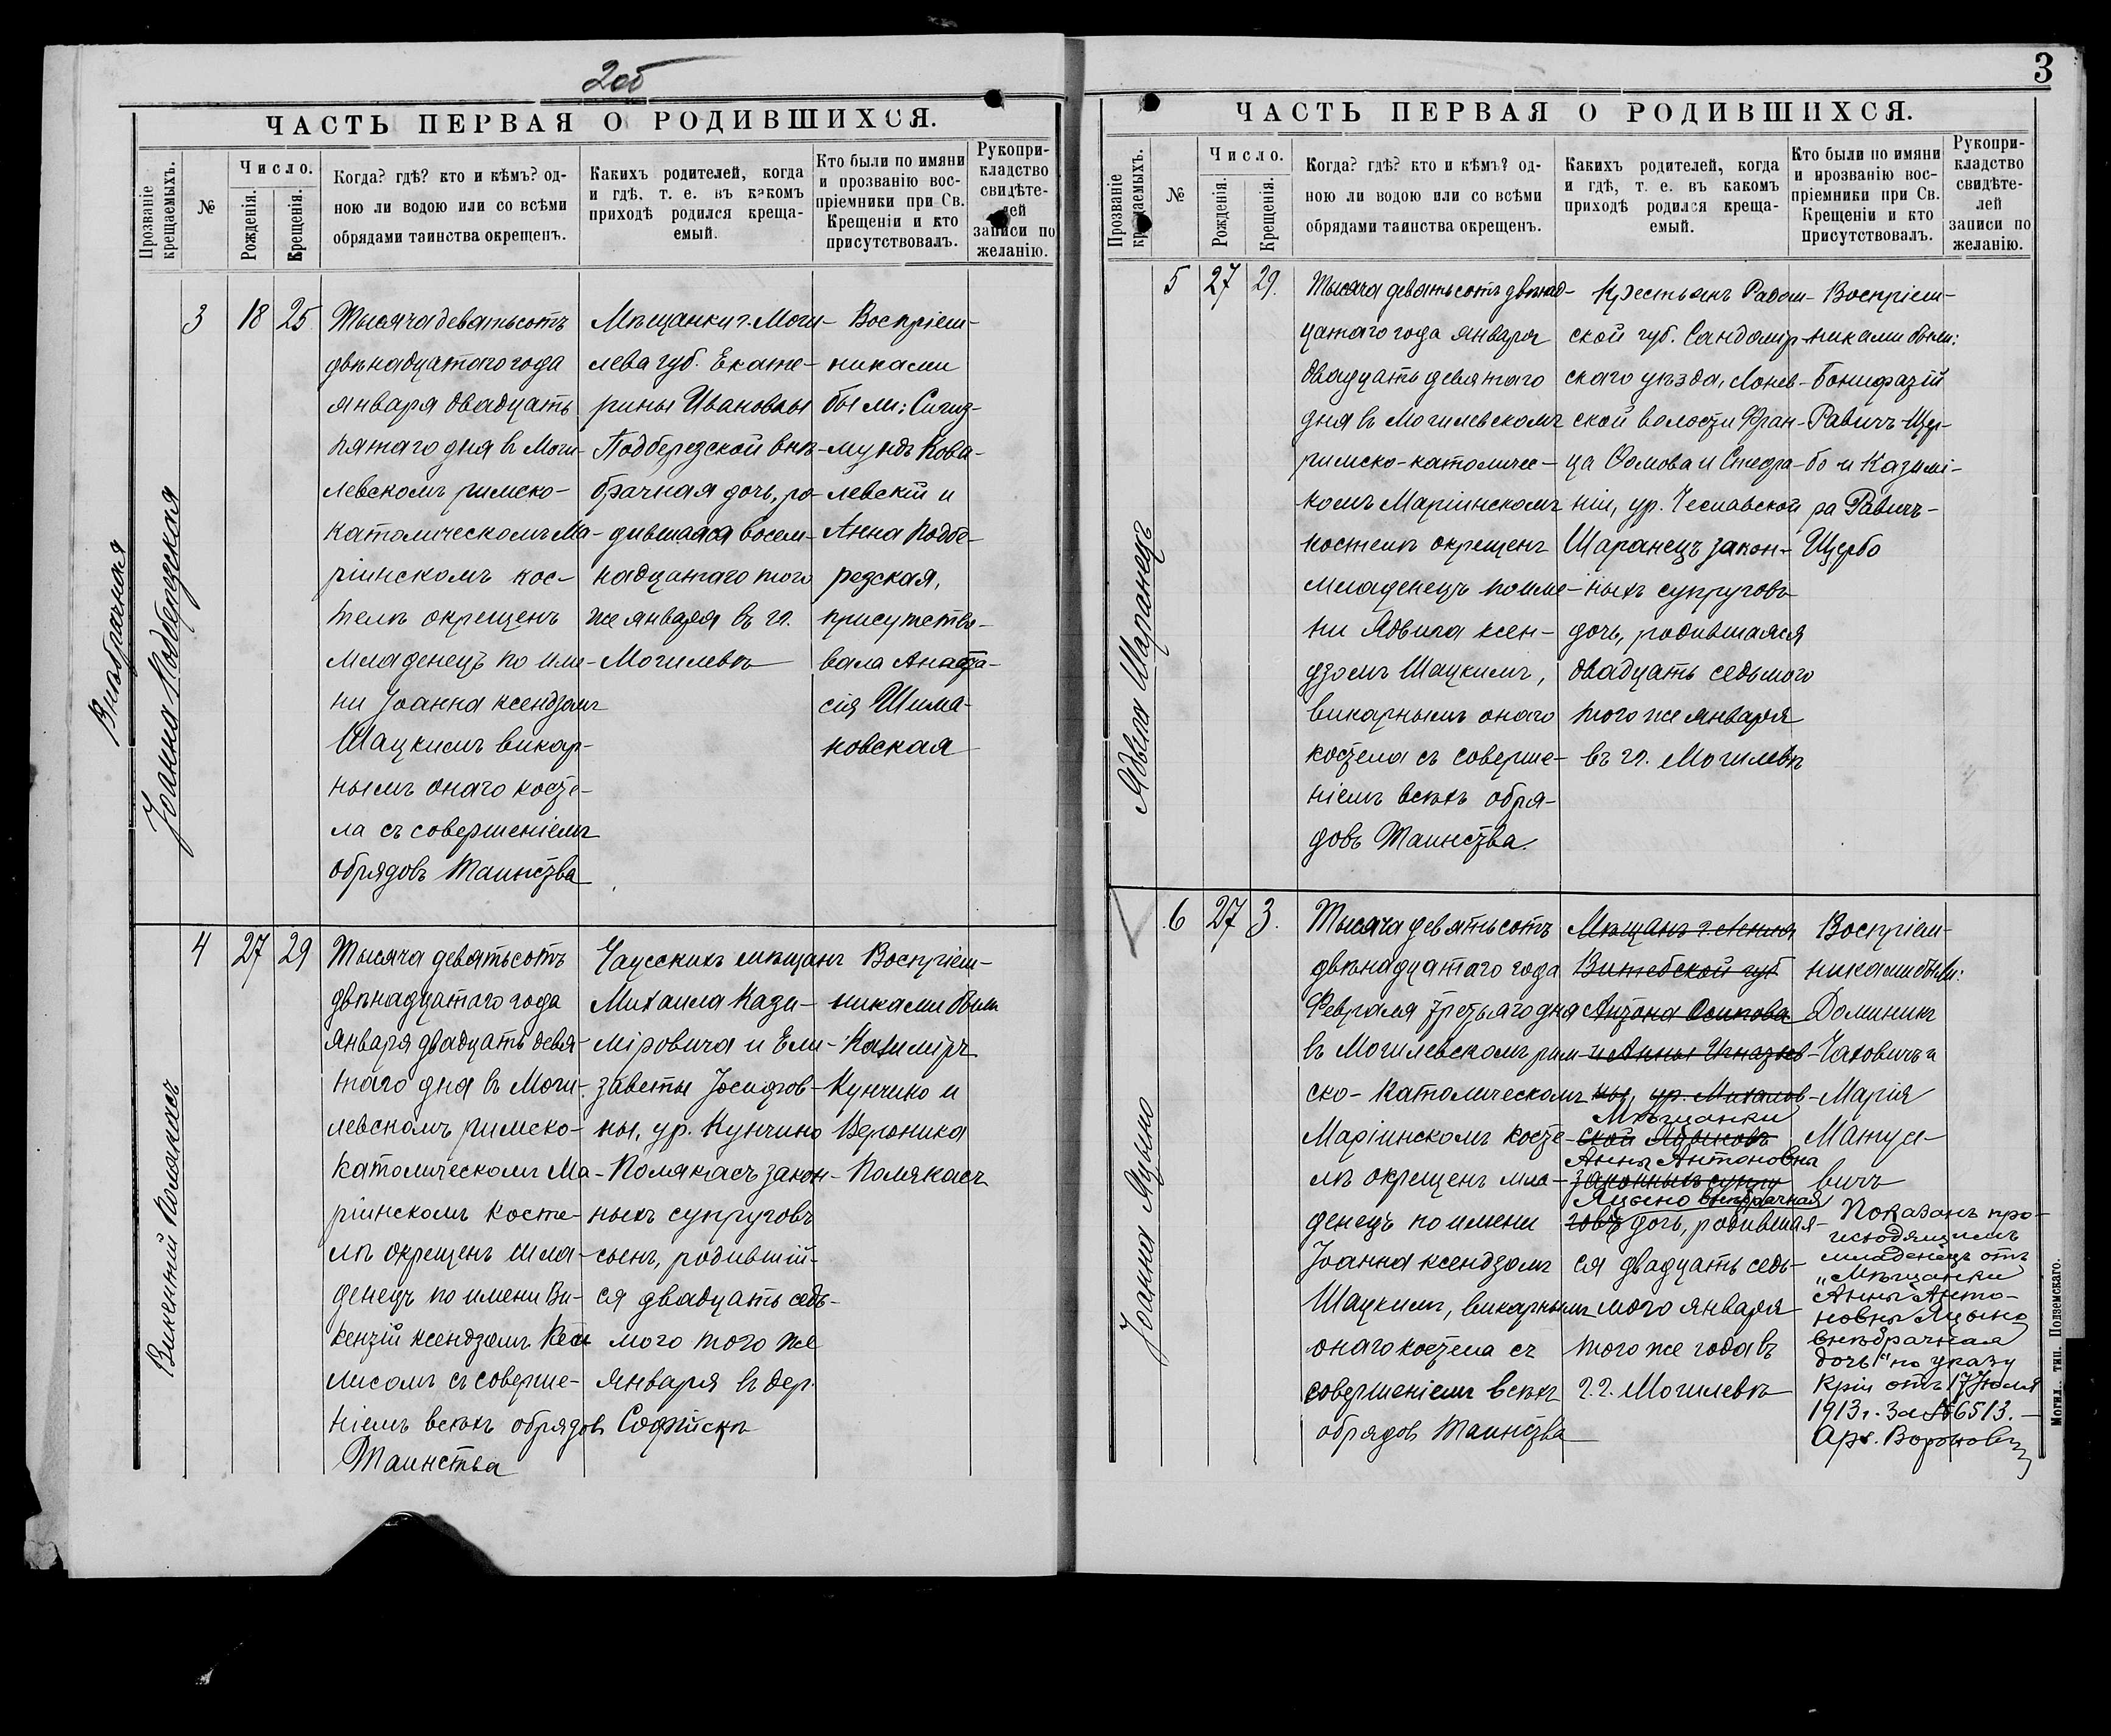 2об
ЧАСТЬ ПЕРВАЯ О РОДИВШИХСЯ.
Прозваніе крещаемыхъ.
№
Число.
Рожденія.
Крещенія.
Когда? гдѣ? кто и кѣмъ? од-
ною ли водою или со всѣми
обрядами таинства окрещенъ.
Какихъ родителей, когда
и гдѣ, т. е. въ какомъ
приходѣ родился креща-
емый.
Кто были по имяни
и прозванію вос-
пріемники при Св.
Крещеніи и кто
присутствовалъ.
Рукопри-
кладство
свидѣте-
лей
записи по
желанію.
Внѣбрачная
Іоанна Подберезская
3
18
25
Тысяча девятьсотъ
двѣнадцатаго года
января двадцать
пятаго дня въ Моги-
левскомъ римско-
католическомъ Ма-
ріинскомъ кос-
телѣ окрещенъ
младенецъ по име-
ни Іоанна ксендзомъ
Шацкимъ викар-
нымъ онаго косте-
ла съ совершеніемъ
обрядовъ Таинства
Мѣщанки г. Моги-
лева губ. Екате-
рины Ивановны
Подберезской внѣ-
брачная дочь, ро-
дившаяся восем-
надцатаго того
же января въ гл.
Могилевѣ
Воспріем-
никами
были: Сигиз-
мундъ Кова-
левскій и
Анна Подбе-
резская,
присутство-
вала Анаста-
сія Шима-
новская
Викентій Полякасъ
4
27
29
Тысяча девятьсотъ
двѣнадцатаго года
января двадцать девя-
таго дня въ Моги-
левскомъ римско-
католическомъ Ма-
ріинскомъ косте-
лѣ окрещенъ мла-
денецъ по имени Ви-
кентій ксендзомъ
лисомъ съ соверше-
ніемъ всѣхъ обрядовъ
Таинства
Чаусскихъ мѣщанъ
Михаила Кази-
міровича и Ели-
заветы Іосифов-
ны, ур. Кунчино
Полякасъ закон-
ныхъ супруговъ
сынъ, родившій-
ся двадцать седь-
мого того же
января въ дер.
Софійскѣ
Воспріем-
никами были
Казиміръ
Кунчино и
Вероника
Полякасъ
3
ЧАСТЬ ПЕРВАЯ О РОДИВШИХСЯ.
Прозваніе крещаемыхъ.
№
Число.
Рожденія.
Крещенія.
Когда? гдѣ? кто и кѣмъ? од-
ною ли водою или со всѣми
обрядами таинства окрещенъ.
Какихъ родителей, когда
и гдѣ, т. е. въ какомъ
приходѣ родился креща-
емый.
Кто были по имяни
и прозванію вос-
пріемники при Св.
Крещеніи и кто
присутствовалъ.
Рукопри-
кладство
свидѣте-
лей
записи по
желанію.
Ядвига Шаранецъ
5
27
29.
Тысяча девятьсотъ двѣнад-
цатаго года января
двадцать девятаго
дня въ Могилевскомъ
римско-католичес-
комъ Маріинскомъ
костелѣ окрещенъ
младенецъ по име-
ни Ядвига ксен-
дзомъ Шацкимъ,
викарнымъ онаго
костела съ соверше-
ніемъ всѣхъ обря-
довъ Таинства.
Крестьянъ Радом-
ской губ. Сандомір-
скаго уѣзда, Лонев-
ской волости Фран-
ца Ѳомова и Стефа-
ніи, ур. Чеславской
Шаранецъ закон-
ныхъ супруговъ
дочь, родившаяся
двадцать седьмого
того же января
въ гл. Могилевѣ
Воспріем-
никами были:
Бонифазій
Равичъ-Щер-
бо и Казимі-
ра Равичъ-
Щербо
Іоанна Яцыно
6
27
3.
Тысяча девятьсотъ
двѣнадцатаго года
Февраля третьяго дня
въ Могилевскомъ рим-
ско-католическомъ
Маріинскомъ косте-
лѣ окрещенъ мла-
денецъ по имени
Іоанна ксендзомъ
Шацкимъ, викарнымъ
онаго костела съ
совершеніемъ всѣхъ
обрядовъ Таинства
Мѣщанъ г. Лепля
Витебской губ
Антона Осипова
и Анны Игнатьев-
ны, ур. Михалов-
Мѣщанки
ской
Анны Антоновны
законныхъ супру
Яцыно внѣбрачная
говъ дочь, родившая-
ся двадцать седь-
мого января
того же года въ
г. г. Могилевѣ
Воспріем-
никами были:
Доминикъ
Чаховичъ и
Марія
Матусе-
вичъ
Показанъ про-
исходящимъ
младенецъ отъ
„Мѣщанки
Анны Анто-
новны Яцыно
внѣбрачная
дочь" по указу
Кріи отъ 17 Іюля
1913 г. за №6513.
Могил., тип. Подземскаго.